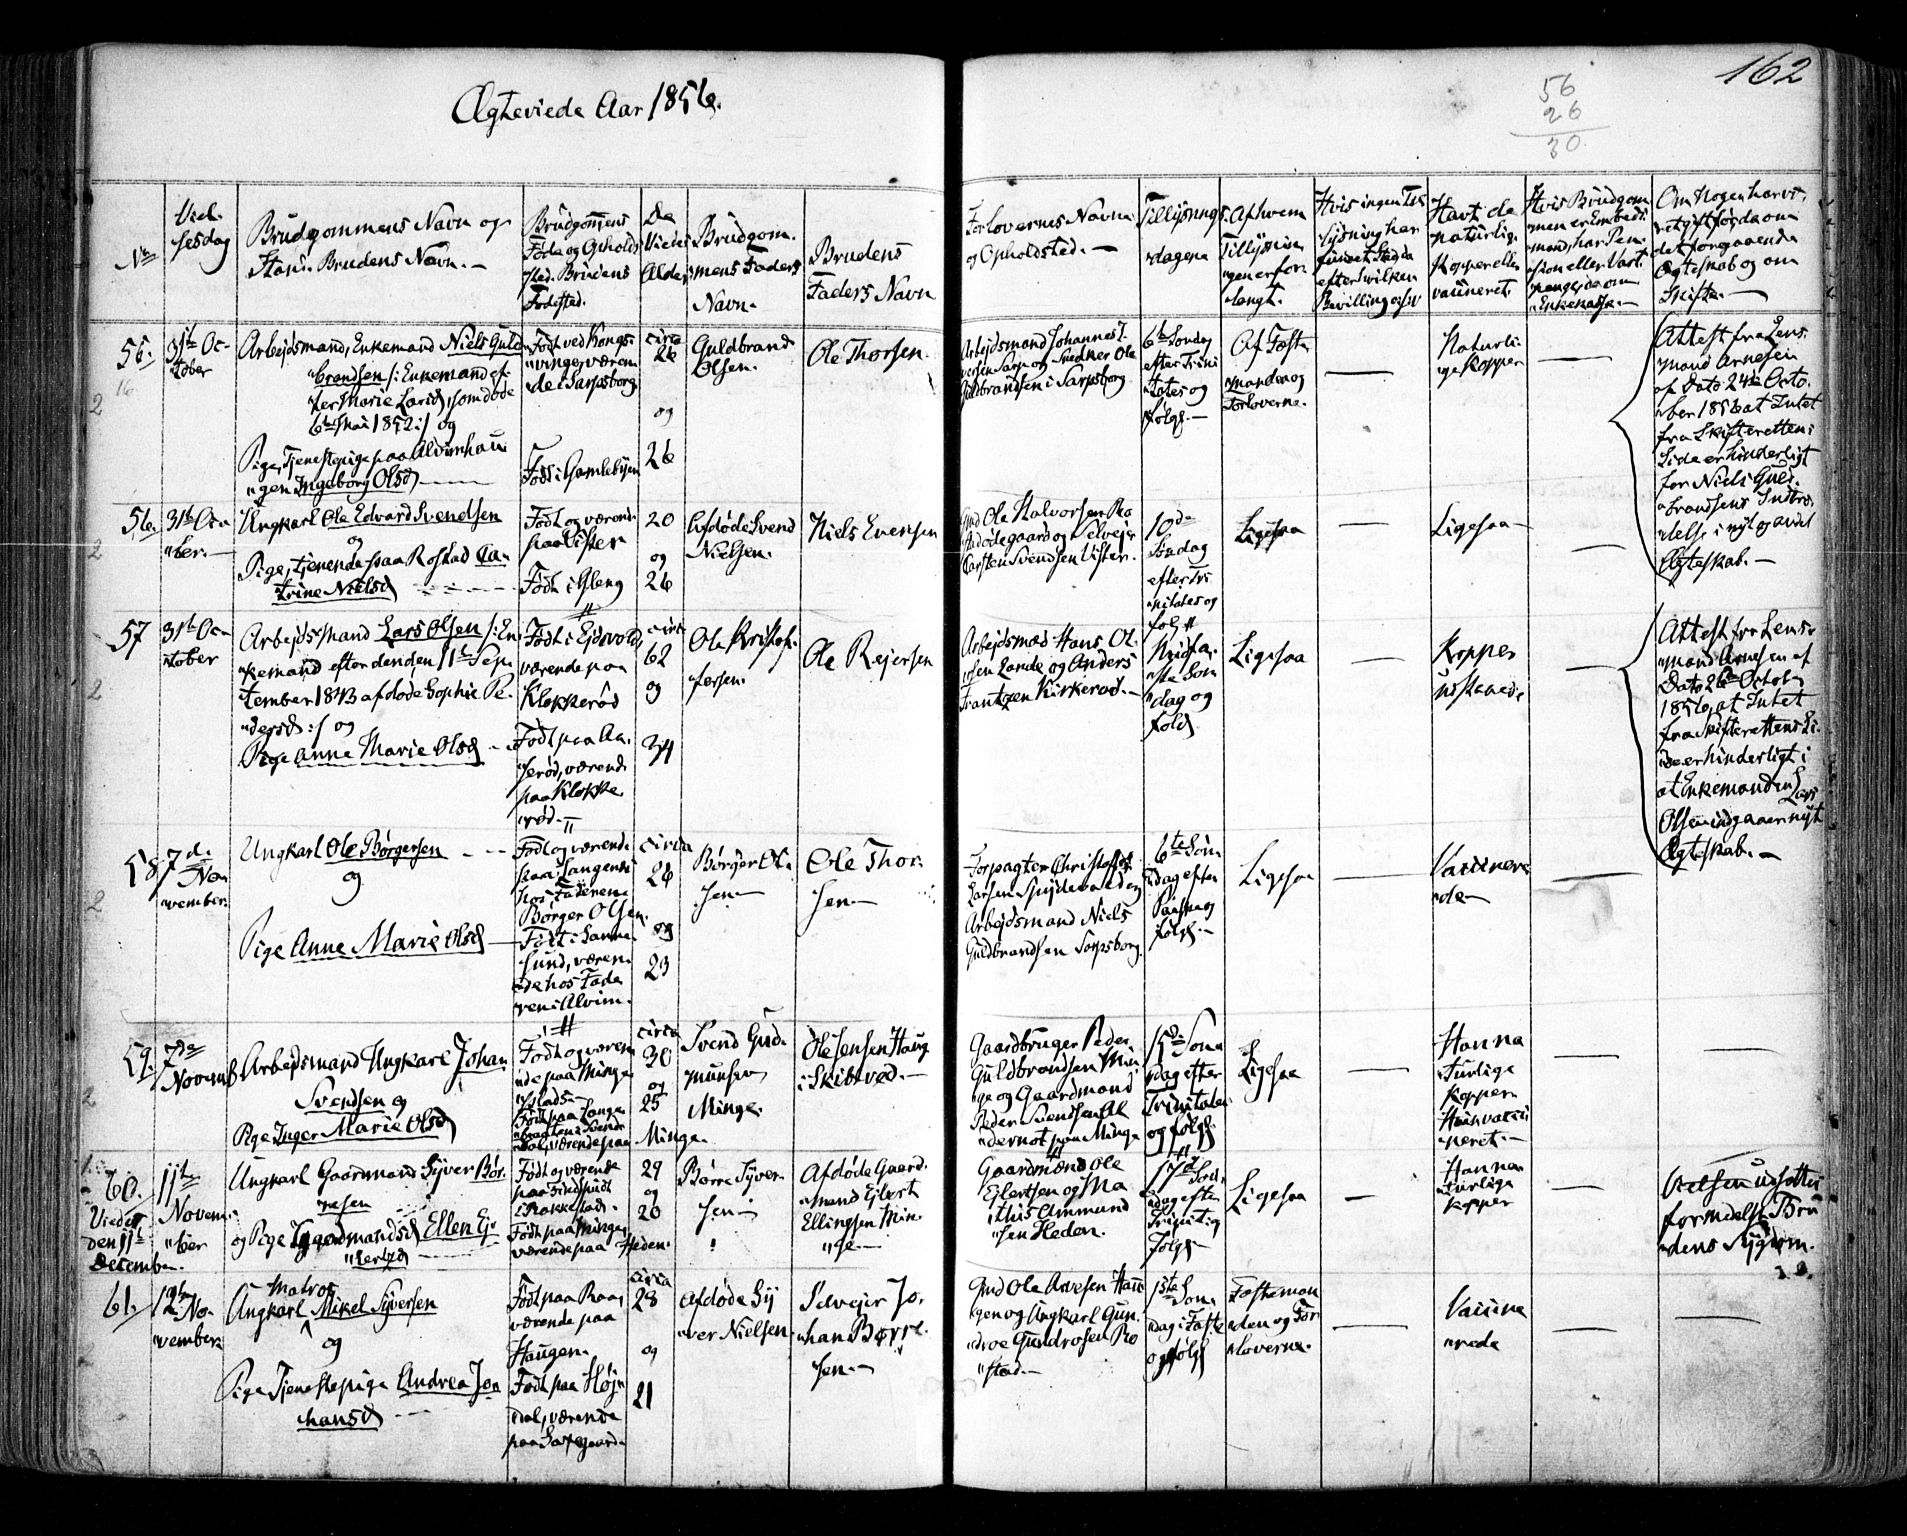 Ægteviede Aar 1856.
162
56
26
30
No
Viel-
sesdag
Brudgommens Navn og
Stand. Brudens Navn. —
Brudgommens
Føde og Opholds
sted. Brudens
Fødested.
De
Viedes
Alder
Brudgom-
mens Faders
Navn.
Brudens
Faders Navn
Forlovernes Navne
og Opholdsted. —
Tillysnings
dagene
Af hvem
Tillysnin
gen er for
langt.
Havt de
naturlige
Kopper eller
vaccineret.
55.
31te Oc-
tober
Arbejdsmand, Enkemand Niels Guld
brandsen /: Enkemand ef-
ter Marie Larsd, som døde
6te Mai 1852 :/ og
Pige, Tjenestepige paa Alvimhau
gen Ingeborg Olsd
Født ved Kongs-
vinger, væren
de i Sarpsborg
Født i Gamlebyen
circa
26
og
26
Guldbrand
Olsen.
Ole Thorsen.
Arbejdsmand Johannes I-
versen Sarp og Snedker Ole
Guldbrandsen i Sarpsborg.
6te Søndag
efter Trini
tates og
følg. —
Af Faste
manden og
Forloverne.
Naturli-
ge Kopper
Attest fra Lens-
mand Arnesen
af Dato 24de Octo-
ber 1856 at Intet
fra Skifterettens
Side er hinderligt
for Niels Guld-
brandsens Indtræ-
delse i nyt og andet
Ægteskab. —
56.
31te Oc-
ber. —
Ungkarl Ole Edvard Svendsen
og
Pige, tjenende paa Rostad Ca-
trine Nielsd
Født og værend
paa Vister
Født i Gleng
20
og
26
Afdøde Svend
Nielsen.
Niels Evensen
Gmd Ole Halvorsen Ro
stadødegaard og Selvejer
Carsten Svendsen Vister.
10de
Søndag
efter Tri
nitates og
følg
Ligesaa
Ligesaa —
57
31te Oc-
tober
Arbejdsmand Lars Olsen /: En
kemand efter den den 11te Sep-
tember 1843 afdøde Sophie Pe-
dersd :/ og
Pige Anne Marie Olsd
Født i Ejdsvold,
værende paa
Klokkerød
Født paa Aa-
serød, værend
paa Klokke
rød —
circa
62
og
34
Ole Kristof-
fersen.
Ole Rejersen
Arbejdsmæd Hans Ol-
sen Lande og Anders
Frantzen Kirkerød. —
Midfa-
ste Søn
dag og
følg
Ligesaa
Kopper
udstaaede
Attest fra Lens-
mand Arnesen af
Dato 26de October
1856, at Intet
fra Skifterettens Si-
de er hinderligt i
at Enkemanden Lars
Olsen indgaaer nyt
Ægteskab. —
58
7de
No-
vember.
Ungkarl Ole Børgersen
og
Pige Anne Marie Olsd
Født og værende
hos Faderen
Børger Olsen.
Født i Sanne
sund, væren
de hos Fade
ren i Alvim.
circa
26
og
23
Børger Ol-
sen —
Ole Thor-
sen —
Larsen
Arbejdsmand Niels
Guldbrandsen Sarpsborg.
6te Søn
dag efter
Paaske og
følg. —
Ligesaa
Vaccinere
de —
59.
7de
Novemb.
Arbejdsmand Ungkarl Johan
Svendsen og
Pige Inger Marie Olsd
Født og væren
de paa Minge
circa
30
og
25
Svend Gud-
munsen
Minge.
Ole Jensen Haug
i Skibtved. —
Gaardbruger Peder
Guldbrandsen Min
ge og Gaardmand
Peder Svendsen
paa Minge
Søn
dag efter
Trinitates
og følg.
Ligesaa
Han na
turlige
Kopper
Hun vacci
neret. —
60.
11te
Novem-
ber
Viedes
den 11te
Decemb
Ungkarl Gaardmand Syver Bør-
resen
og Pige Ggaardmandsd Ellen Ej-
lertsd
Født og værende
i Rakkestad.
Født paa Minge,
værende paa Heden.
29
og
20
Børre Syver-
sen —
Afdøde Gaard-
mand Ejlert
Ellingsen Min-
ge. —
Gaardmænd Ole
Ejlertsen og Ma
this Ammund
sen Heden.
17de Søn-
dag efter
Trinit og
følg. —
Ligesaa
Han na
turlige
Kopper
Vielsen udsattes
formedelst Bru
dens Sygdom.
61.
12te No-
vember.
Matros
Ungkarl Mikel Syversen
og
Pige Tjenestepige Andrea Jo
hansd
Født paa Raa,
værende paa
Haugen.
Født paa Højn
dal, værende
circa
28
og
21
Afdøde Sy
ver Nielsen.
Selvejer Jo-
han Børre-
sen. —
Gmd Ole Arvesen Hau
gen og Ungkarl Gun-
droe Gundrosen Ro
stad. —
1ste Søn-
dag i Faste
og følg
Fastemon
den og For
loverne.
Vaccine
rede